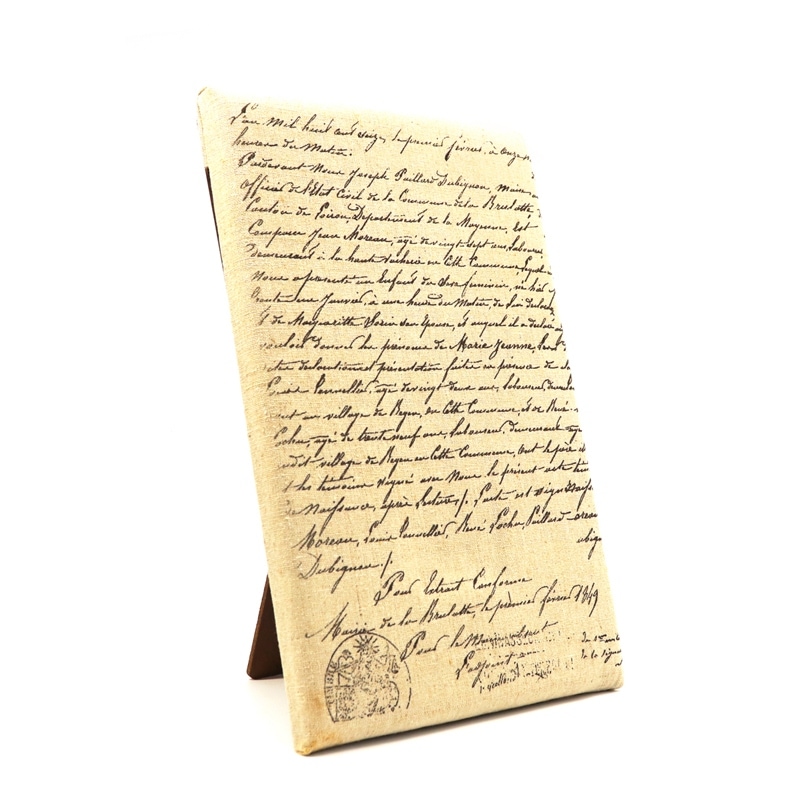 L'an mil huit cent seize, le premier février, à onze
heures du Matin.
Pardevant Nous Joseph Paillard Dubignon, maire
officier de l'Etat Civil de la Commune de la Brulatte,
Canton de Loiron, Département de la Mayenne, Est
Comparu Jean Moreau, agé de vingt-sept ans, laboureur
demeurant à la haute vacherie en Cette Commune, Lequel
Nous a présenté un Enfant du Sexe feminin, né hier
trente une Janvier, à une heure du Matin, de lui Déclarant
Et de Margueritte Sorin son Epouse, et auquel il a déclaré
vouloir donner les prénoms de Marie Jeanne, Les
dites déclaration et présentation faites en présence de
Louis agé de vingt deux ans, laboureur, demeu
rant au village de en Cette Commune, et de René
agé de trente neuf ans, laboureur, demeurant
audit village de en Cette Commune, ont le père et
et les témoins signé avec Nous le présent acte
de Naissance, après Lecture /. L'acte est signé
Moreau, Louis René Paillard
Dubignon /.
Pour Extrait Conforme
Mairie de la Brulatte, le premier février 1849
Pour le Maire absent
L'adjoint
TIMBRE